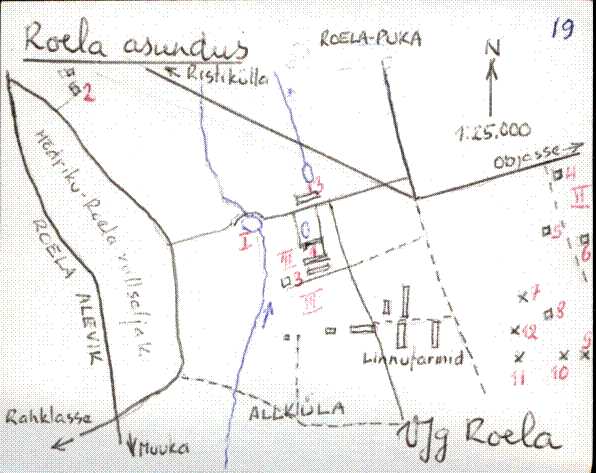 Roela asundus
ROELA-PUKA
19
Ristikülla
N
1:25,000
Objasse
2
4
VI
13
I
5
6
III
1
3
7
8
12
11
10
9
ROELA ALEVIK
Linnufarmid
ALLKÜLA
Vjg Roela
Rahklasse
Muuka